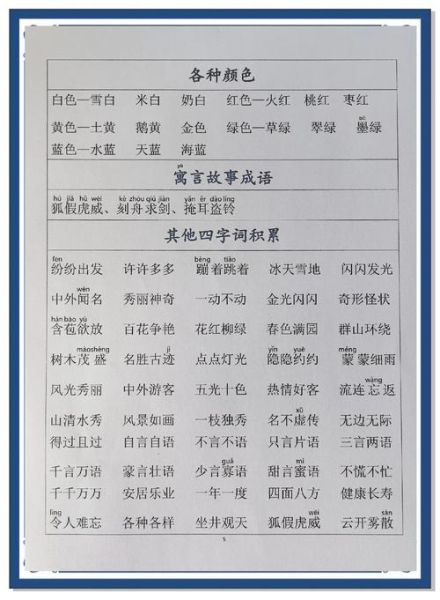 各种颜色
白色—雪白 米白 奶白 红色—火红 桃红 枣红
mò
黄色—土黄 鹅黄 金色 绿色—草绿 翠绿 墨绿
蓝色—水蓝 天蓝 海蓝
yù
寓言故事成语
hú jiǎ hǔ wēi kè zhōu qiú jiàn yǎn ěr dào líng
狐假虎威、刻舟求剑、掩耳盗铃
其他四字词积累
fēn bèng tiào
纷纷出发 许许多多 蹦着跳着 冰天雪地 闪闪发光
wén
中外闻名 秀丽神奇 一动不动 金光闪闪 奇形怪状
hán bāo yù
含苞欲放 百花争艳 花红柳绿 春色满园 群山环绕
mào shèng jì yǐn yuē méng
树木茂盛 名胜古迹 点点灯光 隐隐约约 蒙蒙细雨
wàng
风光秀丽 中外游客 五光十色 热情好客 流连忘返
xū
山清水秀 风景如画 一枝独秀 名不虚传 无边无际
得过且过 自言自语 不言不语 只言片语 三言两语
guǎ mì
千言万语 豪言壮语 少言寡语 甜言蜜语 不慌不忙
千千万万 安居乐业 一年一度 四面八方 健康长寿
lìng wēi sàn
令人难忘 各种各样 坐井观天 狐假虎威 云开雾散
5